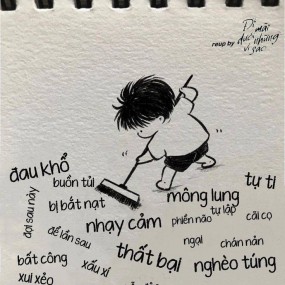 reup by Đi mãi dưới những vì sao
đau khổ
buồn tủi
tự ti
đợi sau này
bị bắt nạt
mông lung
tự lập
nhạy cảm
phiền não
cãi cọ
để lần sau
ngại
chán nản
bất công
xấu xí
thất bại
nghèo túng
xui xẻo